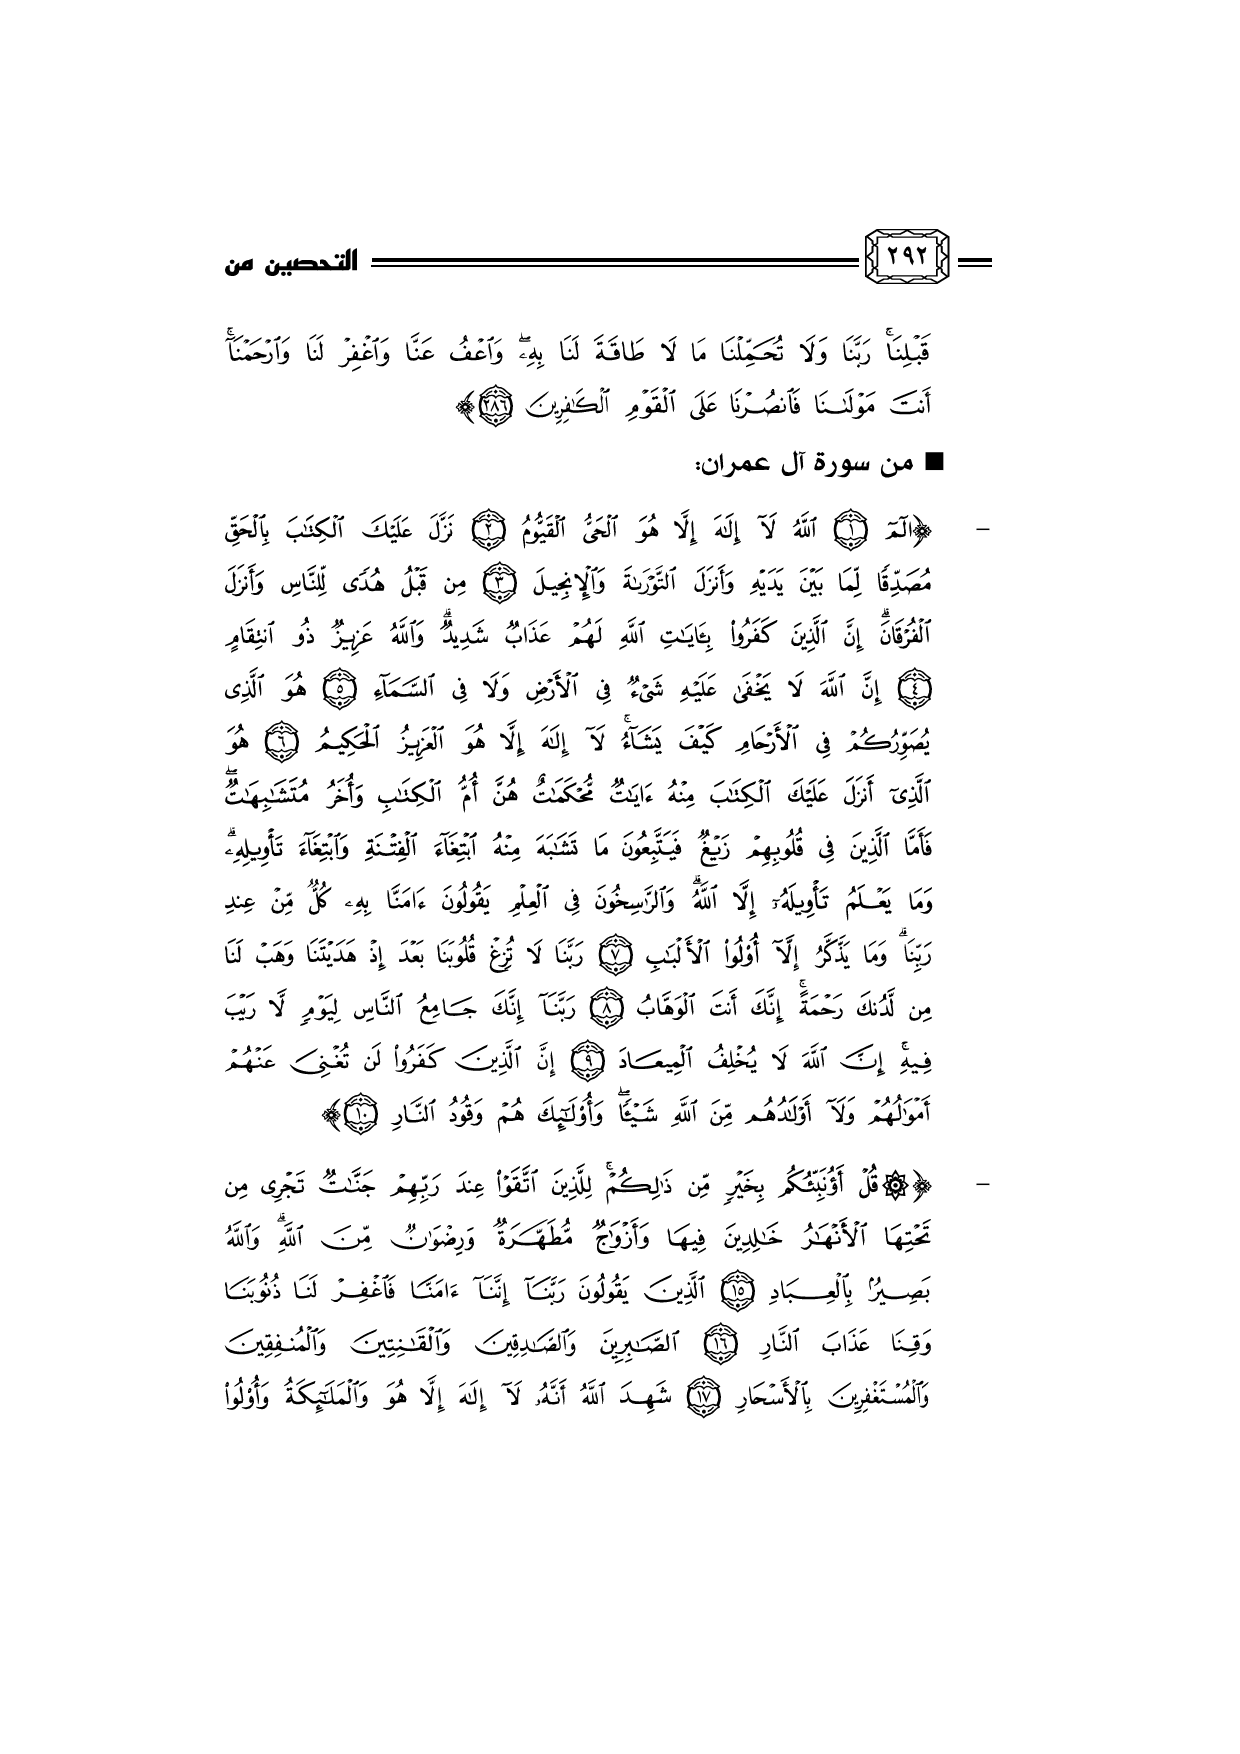 ٢٩٢ التحصين من
قَبۡلِنَاۚ رَبَّنَا وَلَا تُحَمِّلۡنَا مَا لَا طَاقَةَ لَنَا بِهِۦۖ وَٱعۡفُ عَنَّا وَٱغۡفِرۡ لَنَا وَٱرۡحَمۡنَآۚ
أَنتَ مَوۡلَىٰنَا فَٱنصُرۡنَا عَلَى ٱلۡقَوۡمِ ٱلۡكَٰفِرِينَ ٢٨٦﴾
■ من سورة آل عمران:
– ﴿الٓمٓ ١ ٱللَّهُ لَآ إِلَٰهَ إِلَّا هُوَ ٱلۡحَيُّ ٱلۡقَيُّومُ ٢ نَزَّلَ عَلَيۡكَ ٱلۡكِتَٰبَ بِٱلۡحَقِّ
مُصَدِّقٗا لِّمَا بَيۡنَ يَدَيۡهِ وَأَنزَلَ ٱلتَّوۡرَىٰةَ وَٱلۡإِنجِيلَ ٣ مِن قَبۡلُ هُدٗى لِّلنَّاسِ وَأَنزَلَ
ٱلۡفُرۡقَانَۗ إِنَّ ٱلَّذِينَ كَفَرُواْ بِـَٔايَٰتِ ٱللَّهِ لَهُمۡ عَذَابٞ شَدِيدٞۗ وَٱللَّهُ عَزِيزٞ ذُو ٱنتِقَامٍ
٤ إِنَّ ٱللَّهَ لَا يَخۡفَىٰ عَلَيۡهِ شَيۡءٞ فِي ٱلۡأَرۡضِ وَلَا فِي ٱلسَّمَآءِ ٥ هُوَ ٱلَّذِي
يُصَوِّرُكُمۡ فِي ٱلۡأَرۡحَامِ كَيۡفَ يَشَآءُۚ لَآ إِلَٰهَ إِلَّا هُوَ ٱلۡعَزِيزُ ٱلۡحَكِيمُ ٦ هُوَ
ٱلَّذِيٓ أَنزَلَ عَلَيۡكَ ٱلۡكِتَٰبَ مِنۡهُ ءَايَٰتٞ مُّحۡكَمَٰتٌ هُنَّ أُمُّ ٱلۡكِتَٰبِ وَأُخَرُ مُتَشَٰبِهَٰتٞۖ
فَأَمَّا ٱلَّذِينَ فِي قُلُوبِهِمۡ زَيۡغٞ فَيَتَّبِعُونَ مَا تَشَٰبَهَ مِنۡهُ ٱبۡتِغَآءَ ٱلۡفِتۡنَةِ وَٱبۡتِغَآءَ تَأۡوِيلِهِۦۗ
وَمَا يَعۡلَمُ تَأۡوِيلَهُۥٓ إِلَّا ٱللَّهُۗ وَٱلرَّٰسِخُونَ فِي ٱلۡعِلۡمِ يَقُولُونَ ءَامَنَّا بِهِۦ كُلّٞ مِّنۡ عِندِ
رَبِّنَاۗ وَمَا يَذَّكَّرُ إِلَّآ أُوْلُواْ ٱلۡأَلۡبَٰبِ ٧ رَبَّنَا لَا تُزِغۡ قُلُوبَنَا بَعۡدَ إِذۡ هَدَيۡتَنَا وَهَبۡ لَنَا
مِن لَّدُنكَ رَحۡمَةًۚ إِنَّكَ أَنتَ ٱلۡوَهَّابُ ٨ رَبَّنَآ إِنَّكَ جَامِعُ ٱلنَّاسِ لِيَوۡمٖ لَّا رَيۡبَ
فِيهِۚ إِنَّ ٱللَّهَ لَا يُخۡلِفُ ٱلۡمِيعَادَ ٩ إِنَّ ٱلَّذِينَ كَفَرُواْ لَن تُغۡنِيَ عَنۡهُمۡ
أَمۡوَٰلُهُمۡ وَلَآ أَوۡلَٰدُهُم مِّنَ ٱللَّهِ شَيۡـٔٗاۖ وَأُوْلَٰٓئِكَ هُمۡ وَقُودُ ٱلنَّارِ ١٠﴾
– ﴿۞قُلۡ أَؤُنَبِّئُكُم بِخَيۡرٖ مِّن ذَٰلِكُمۡۚ لِلَّذِينَ ٱتَّقَوۡاْ عِندَ رَبِّهِمۡ جَنَّٰتٞ تَجۡرِي مِن
تَحۡتِهَا ٱلۡأَنۡهَٰرُ خَٰلِدِينَ فِيهَا وَأَزۡوَٰجٞ مُّطَهَّرَةٞ وَرِضۡوَٰنٞ مِّنَ ٱللَّهِۗ وَٱللَّهُ
بَصِيرُۢ بِٱلۡعِبَادِ ١٥ ٱلَّذِينَ يَقُولُونَ رَبَّنَآ إِنَّنَآ ءَامَنَّا فَٱغۡفِرۡ لَنَا ذُنُوبَنَا
وَقِنَا عَذَابَ ٱلنَّارِ ١٦ ٱلصَّٰبِرِينَ وَٱلصَّٰدِقِينَ وَٱلۡقَٰنِتِينَ وَٱلۡمُنفِقِينَ
وَٱلۡمُسۡتَغۡفِرِينَ بِٱلۡأَسۡحَارِ ١٧ شَهِدَ ٱللَّهُ أَنَّهُۥ لَآ إِلَٰهَ إِلَّا هُوَ وَٱلۡمَلَٰٓئِكَةُ وَأُوْلُواْ